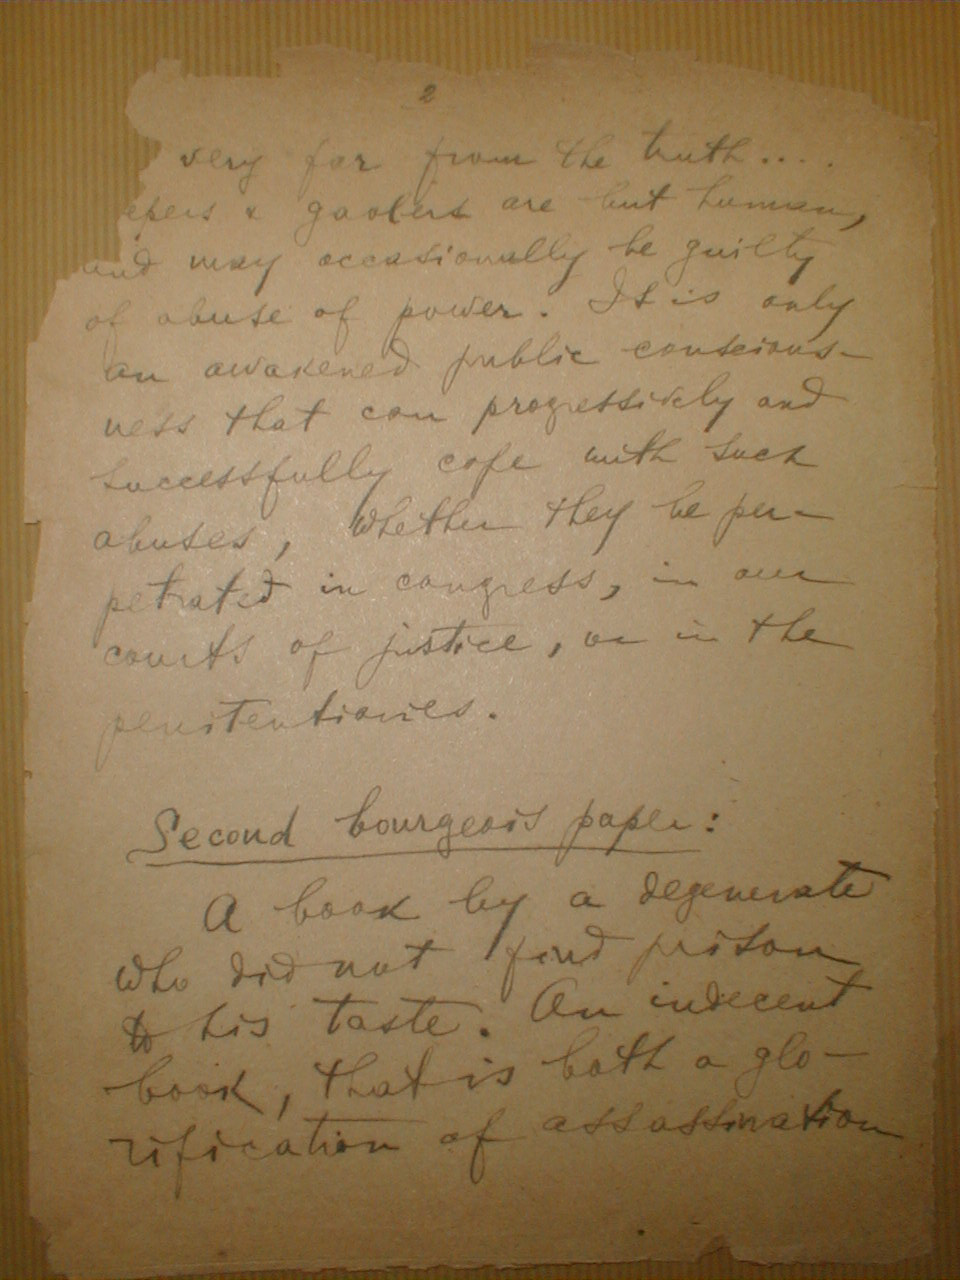 2
very far from the truth....
epers & gaolers are but human,
and may occasionally be guilty
of abuse of power. It is only
an awakened public conscious-
ness that can progressively and
successfully cope with such
abuses, whether they be per-
petrated in congress, in our
courts of justice, or in the
penitentiaries.
Second bourgeois paper:
A book by a degenerate
who did not find prison
to his taste. An indecent
book, that is both a glo-
rification of assassination